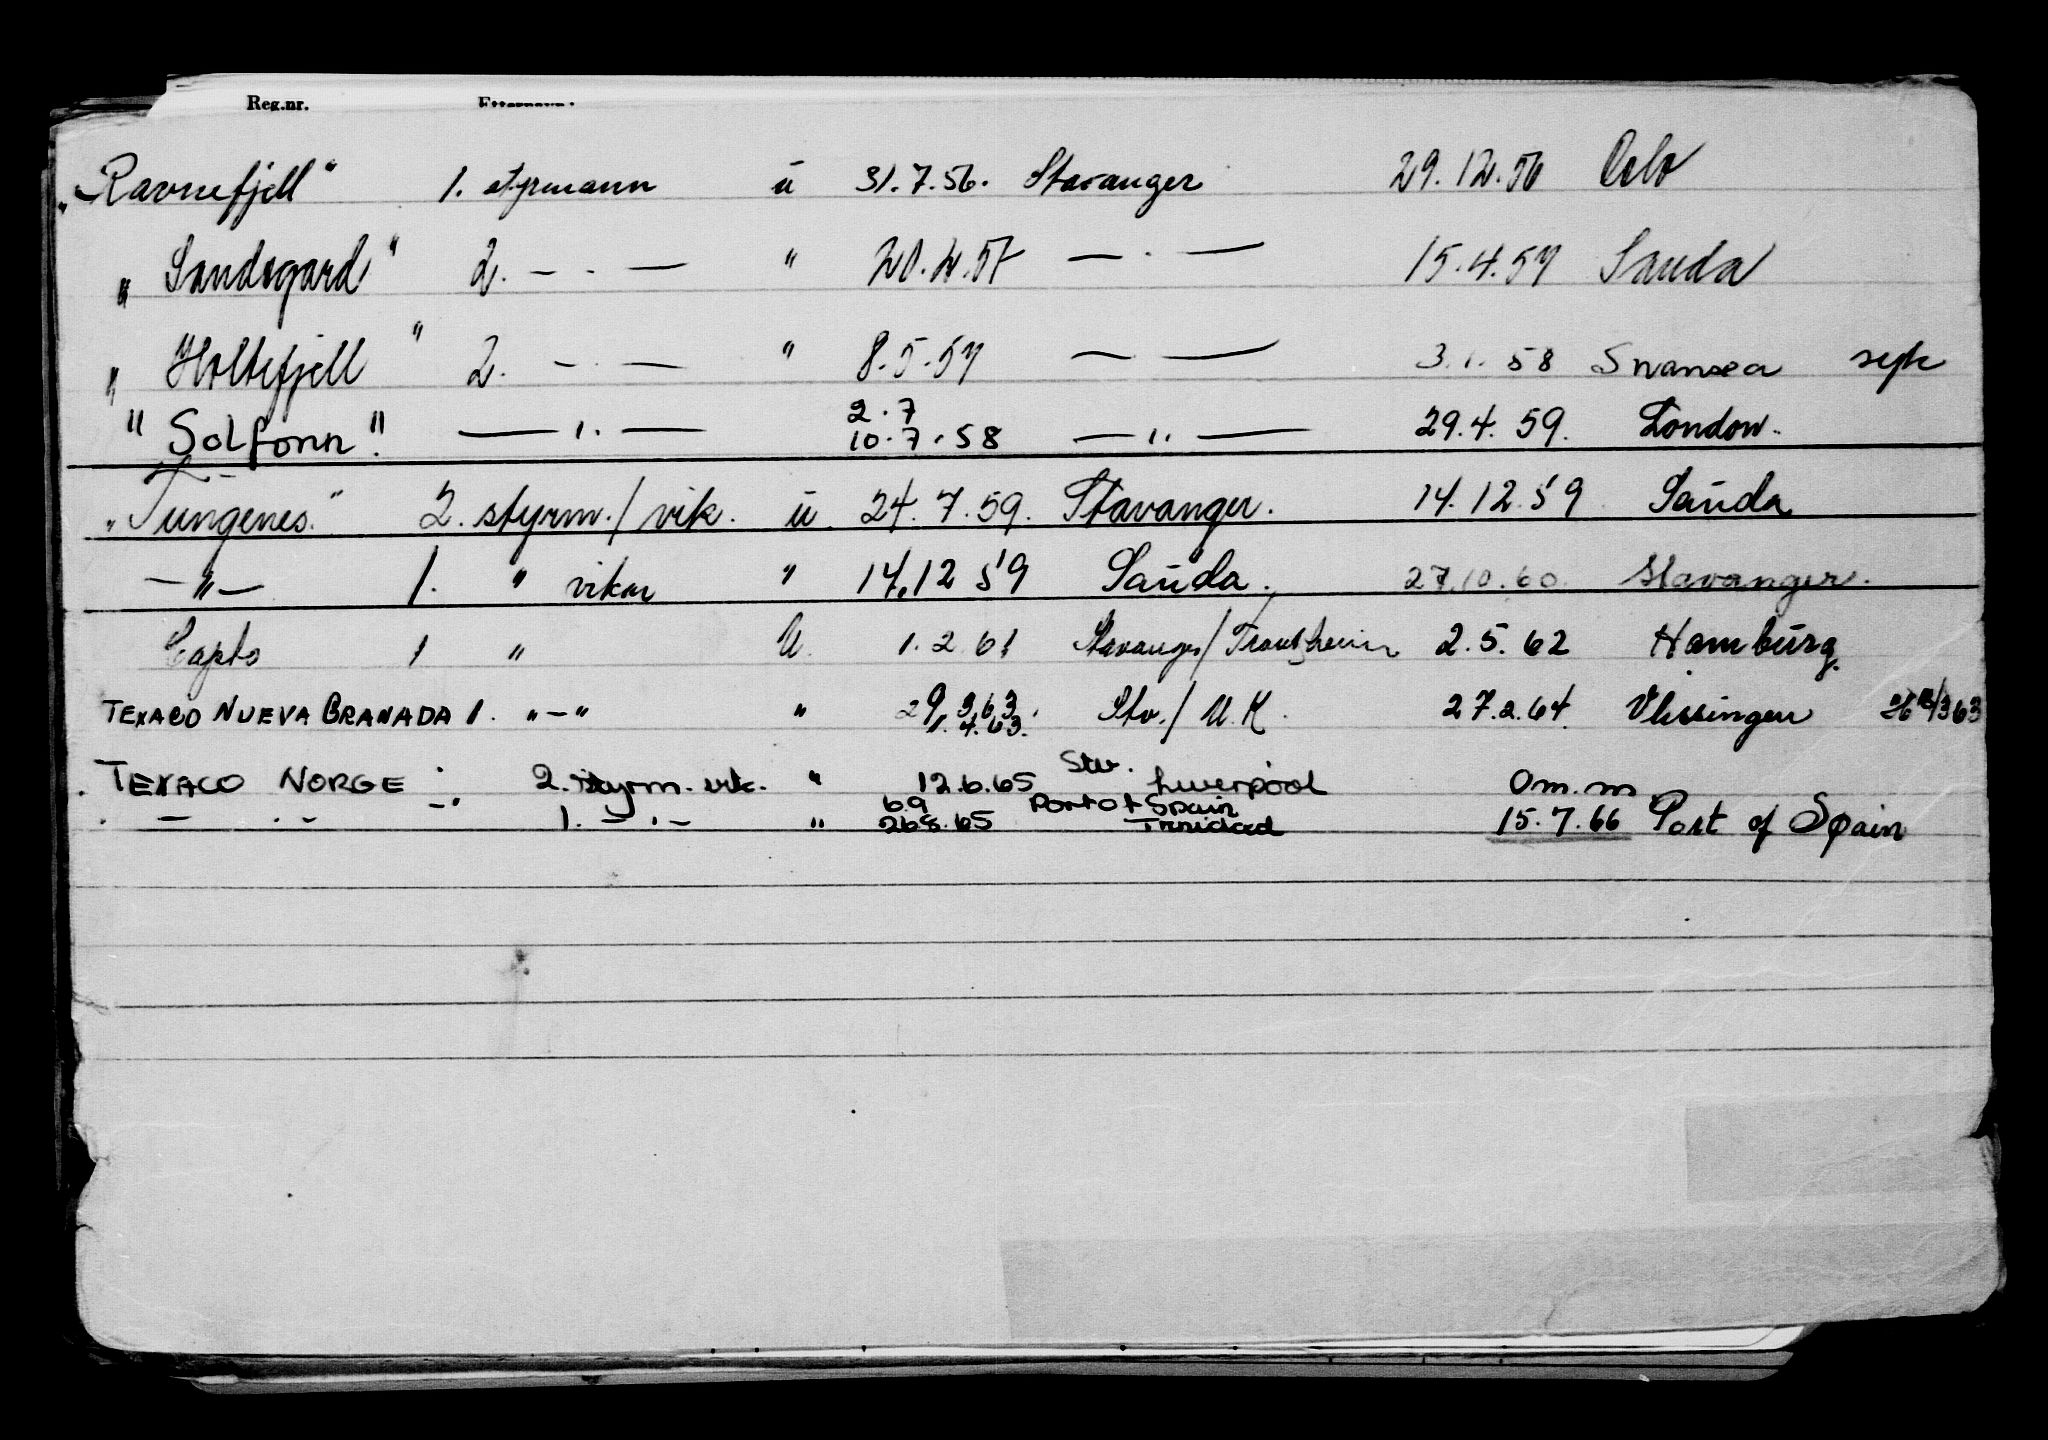 Reg.nr. Etternavn:
„Ravnefjell" 1. styrmann u 31.7.56. Stavanger 29.12.56 Oslo
„Sandsgard" 2. — · — " 20.2.57 — · — 15.4.57 Sauda
„Holtefjell" 2. — · — " 8.5.57 — · — 3.1.58 Swansea syk
2.7
"Solfonn". — " — 10.7.58 — " — 29.4.59. London.
„Tungenes." 2. styrm./vik. u. 24.7.59. Stavanger. 14.12.59 Sauda
— " — 1. " vikar " 14.12 59 Sauda. 27.10.60. Stavanger.
Capto 1 " U. 1.2.61 Stavanger/Trondheim 2.5.62 Hamburg.
TEXACO NUEVA GRANADA 1. "—" " 29.3.63. Stv./U.K. 27.2.64. Vlissingen
1.4.63.
TEXACO NORGE 2. styrm. vik. " 12.6.65 Stv. Liverpool Om.m.
6.9 Port of Spain
— · — 1. — " — " 26.8.65 Trinidad 15.7.66 Port of Spain